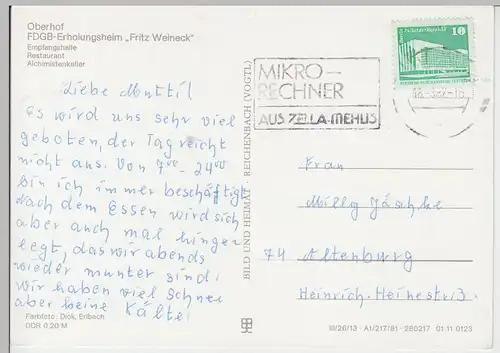 Oberhof
FDGB-Erholungsheim „Fritz Weineck"
Empfangshalle
Restaurant
Alchimistenkeller
Liebe Mutti!
Es wird uns sehr viel
geboten, der Tag reicht
nicht aus. Von 7⁰⁰ - 24⁰⁰
bin ich immer beschäftigt
Nach dem Essen wird sich
aber auch mal hinge-
legt, das wir abends
wieder munter sind.
Wir haben viel Schnee
aber keine Kälte!
Farbfoto: Dick, Erlbach
DDR 0,20 M
BILD UND HEIMAT REICHENBACH (VOGTL)
MIKRO-
RECHNER
AUS ZELLA-MEHLIS
10
Frau
Milly Jäschke
74 Altenburg
Heinrich-Heinestr.
III/26/13 A1/217/81 280217 01 11 0123